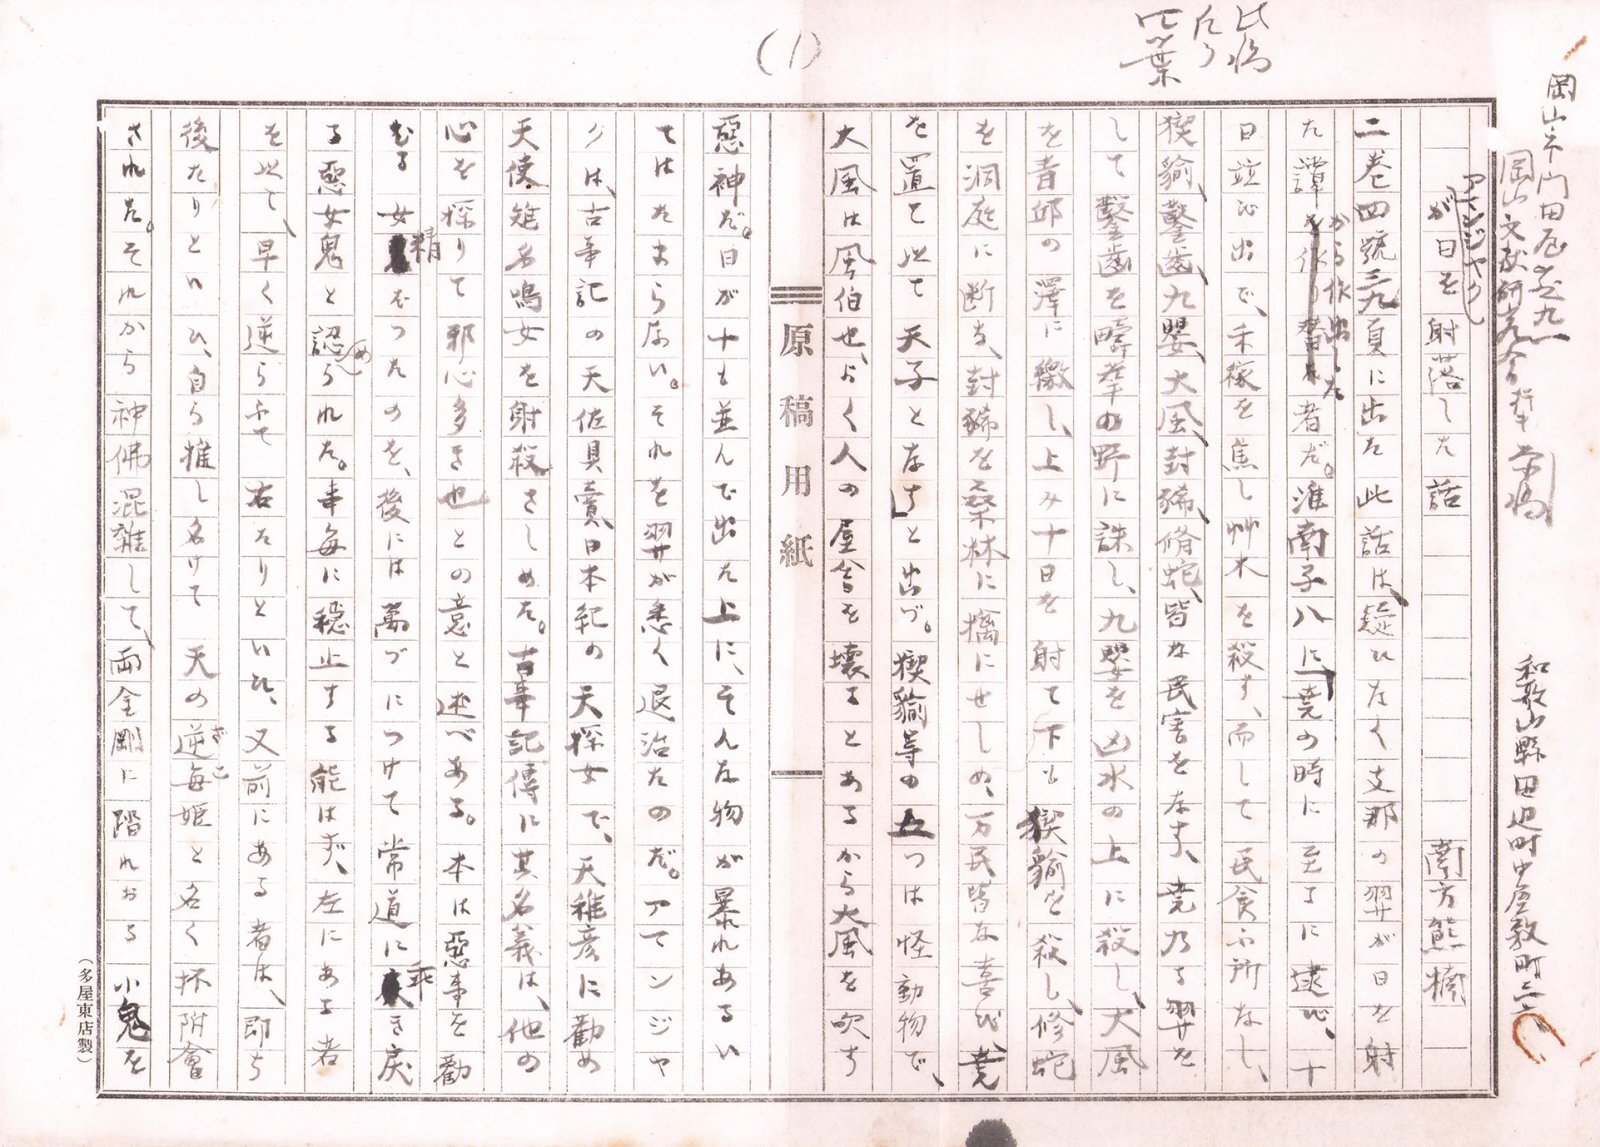 此稿
凡ソ
四葉
(1)
岡山市門田屋敷九一
岡山文献研究会 行 草稿
和歌山縣田辺町中屋敷町三六
アマンジャク
が日を射落した話 南方熊楠
二巻四號三九頁に出た此話は、疑ひなく支那の羿が日を射
た譚から作出した者だ。淮南子八に、「堯の時に至るに逮び、十
日竝び出で、禾稼を焦し艸木を殺す、而して民食ふ所なし、
猰貐、鑿齒、九嬰、大風、封豨、脩蛇、皆な民害をなす、堯乃ち羿を
して鑿齒を疇華の野に誅し、九嬰を凶水の上に殺し、大風
を青邱の澤に繳し、上み十日を射て下も猰貐を殺し、修蛇
を洞庭に断ち、封豨を桑林に擒にせしめ、万民皆な喜び、堯
を置て以て天子となす」と出づ。猰貐等の五つは怪動物で、
大風は風伯也、よく人の屋舎を壊るとあるから大風を吹す
原稿用紙
惡神だ。日が十も並んで出た上に、そんな物が暴れあるい
てはたまらない。それを羿が悉く退治たのだ。アマンジャ
クは、古事記の天佐具賣、日本紀の天探女で、天稚彦に勸め
天使雉名鳴女を射殺さしめた。古事記傳に其名義は、他の
心を探りて邪心多き也との意と述べある。本は惡事を勸
むる女精だつたのを、後には萬づにつけて常道に乖き戻
る惡女鬼と認められた。事毎に穏止する能はず、左にある者
を以て、早く逆らふて右たりといひ、又前にある者は、即ち
後たりといひ、自ら推し名けて天の逆毎姫と名く抔附會
ざこ
された。それから神佛混雑して、両金剛に踏れおる小鬼を
(多屋東店製)